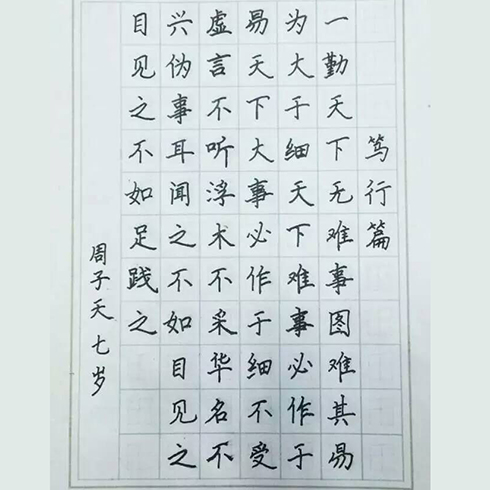 笃行篇
一勤天下无难事图难其易
为大于细天下难事必作于
易天下大事必作于细不受
虚言不听浮术不采华名不
兴伪事耳闻之不如目见之
目见之不如足践之
周子天七岁